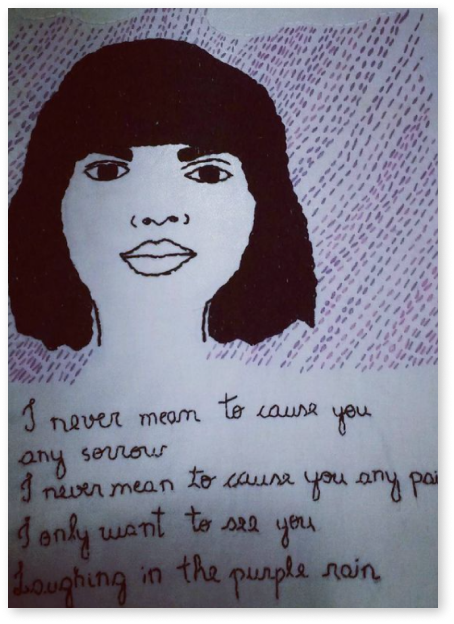 I never mean to cause you
any sorrow
I never mean to cause you any pai
I only want to see you
Laughing in the purple rain